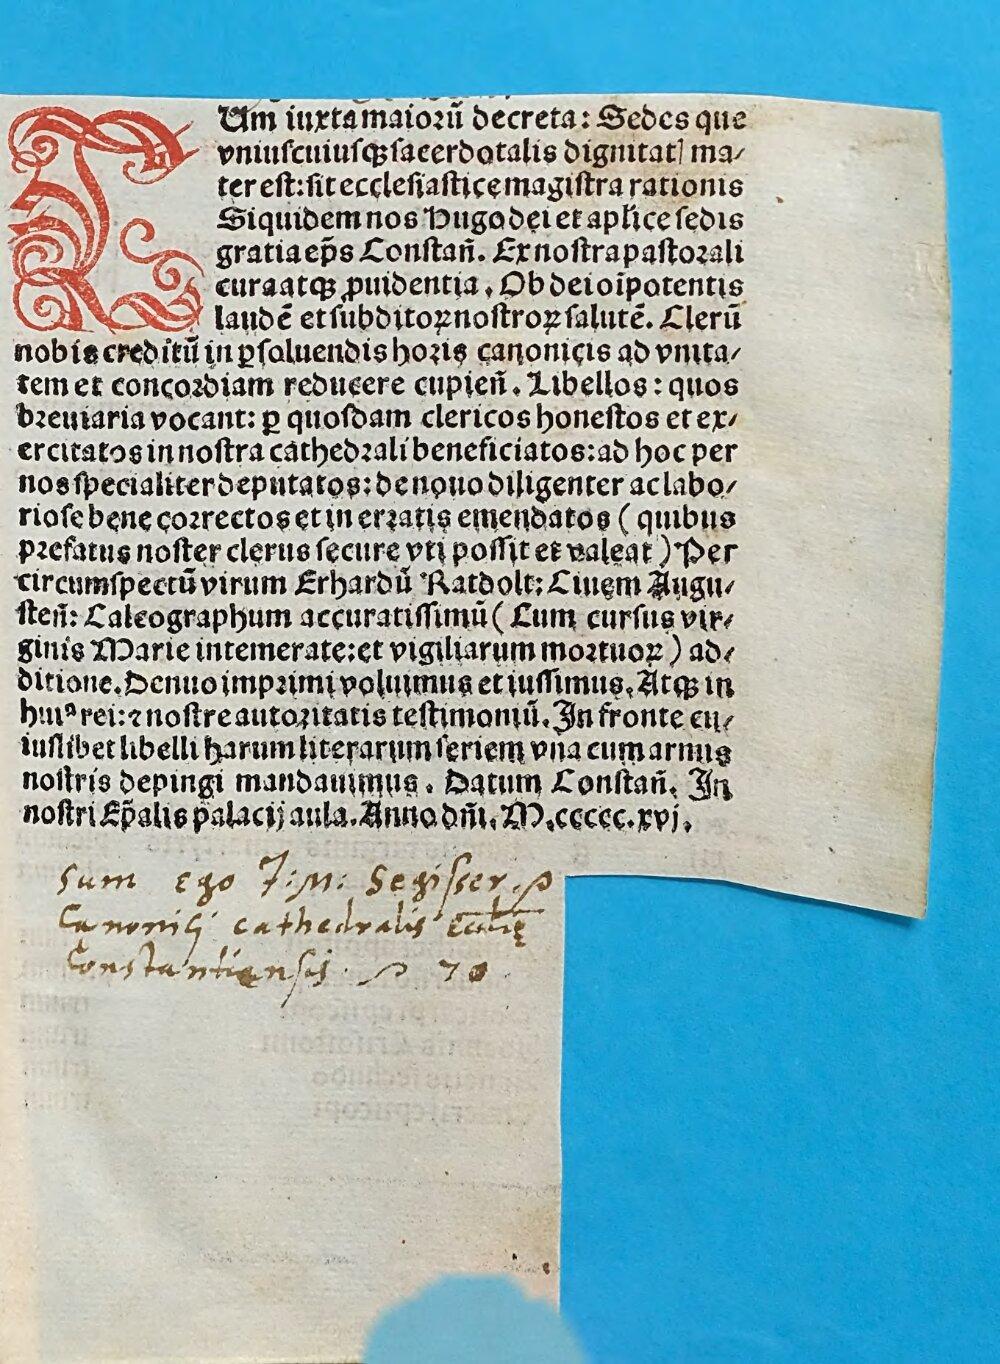 CUm iuxta maioꝛū decreta: Sedes que
vniuscuiusqꝫ sacerdotalis dignitatꝭ ma⸗
ter est: sit ecclesiastice magistra rationis
Siquidem nos Hugo dei et aplice sedis
gratia ep̄s Constan̄. Ex nostra pastoꝛali
cura atqꝫ ꝓuidentia. Ob dei oīpotentis
laudē et subditoꝝ nostroꝝ salutē. Clerū
nobis creditū in ꝑsoluendis hoꝛis canonicis ad vnita⸗
tem et concoꝛdiam reducere cupien̄. Libellos: quos
bꝛeuiaria vocant: ꝑ quosdam clericos honestos et ex⸗
ercitatos in nostra cathedꝛali beneficiatos: ad hoc per
nos specialiter deputatos: de nouo diligenter ac labo⸗
riose bene coꝛrectos et in erꝛatis emendatos ( quibus
pꝛefatus noster clerus secure vti possit et valeat ) Per
circumspectū virum Erhardū Ratdolt: Ciuem Augu⸗
sten̄: Calcographum accuratissimū ( Cum cursus vir⸗
ginis Marie intemerate: et vigiliarum moꝛtuoꝝ ) ad⸗
ditione. Denuo impꝛimi voluimus et iussimus. Atqꝫ in
huiꝰ rei: ⁊ nostre autoꝛitatis testimoniū. In fronte cu⸗
iuslibet libelli harum literarum seriem vna cum armis
nostris depingi mandauimus. Datum Constan̄. In
nostri Ep̄alis palacij aula. Anno dn̄i. M.ccccc.xvj.
Sum Ego J: M: Segisser.
Canonicj cathedralis
Constantiensis. 70